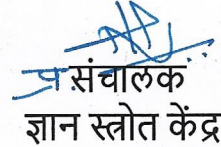 प्र.संचालक
ज्ञान स्त्रोत केंद्र